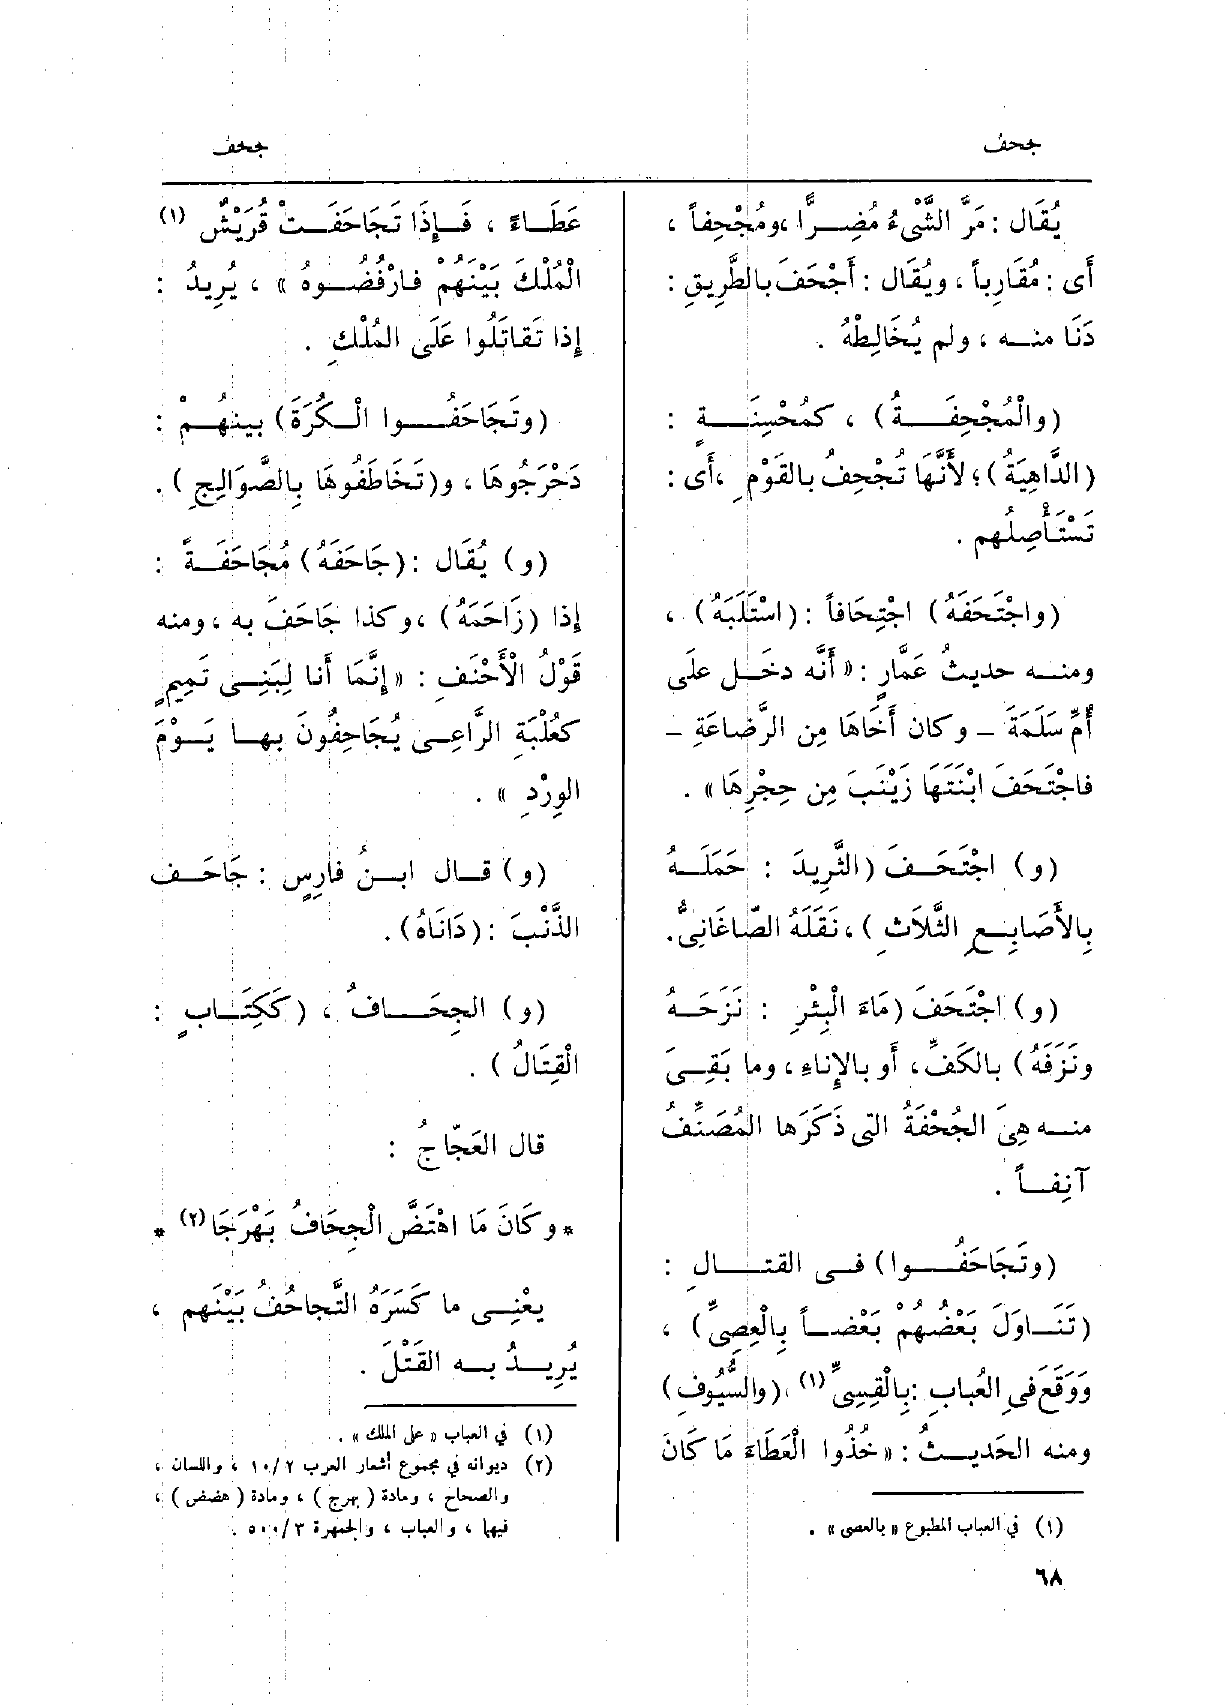 جحف
جحف
يُقَال : مَرَّ الشَّىْءُ مُضِرًّا ، ومُجْحِفاً ،
أَى : مُقَارِباً ، ويُقَال : أَجْحَفَ بالطَّرِيقِ :
دَنَا منه ، ولم يُخَالِطْهُ .
(والْمُجْحِفَةُ) ، كمُحْسِنَةٍ :
(الدَّاهِيَةُ) ؛ لأَنَّهَا تُجْحِفُ بالقَوْمِ ، أَى :
تَسْتَأْصِلُهم .
(واجْتَحَفَهُ) اجْتِحَافاً : (اسْتَلَبَهُ) ،
ومنه حديثُ عَمَّارٍ : « أَنَّه دخَل على
أُمِّ سَلَمَةَ – وكان أَخَاهَا مِن الرَّضَاعَةِ –
فاجْتَحَفَ ابْنَتَهَا زَيْنَبَ مِن حِجْرِهَا » .
(و) اجْتَحَفَ (الثَّرِيدَ : حَمَلَهُ
بِالأَصَابِعِ الثَّلاَثِ ) ، نَقَلَهُ الصّاغَانِىُّ.
(و) اجْتَحَفَ (مَاءَ الْبِئْرِ : نَزَحَهُ
ونَزَفَهُ) بالكَفِّ، أَو بالإِناءِ ، وما بَقِىَ
منه هِىَ الجُحْفَةُ التى ذَكَرَها المُصَنِّفُ
آنِفاً .
(وتَجَاحَفُوا) فى القتالِ :
(تَنَاوَلَ بَعْضُهُمْ بَعْضاً بِالْعِصِىِّ) ،
وَوَقَعَ فى العُبابِ : بِالْقِسِىِّ (١) ، (والسُّيُوفِ)
ومنه الحَديثُ : « خُذُوا الْعَطَاءَ مَا كَانَ
(١) في العباب المطبوع « بالعصى » .
عَطَاءً ، فَإِذَا تَجَاحَفَتْ قُرَيْشٌ (١)
الْمُلْكَ بَيْنَهُمْ فارْفُضُوهُ » ، يُرِيدُ :
إِذا تَقاتَلُوا عَلَى المُلْكِ .
(وتَجَاحَفُوا الْكُرَةَ) بينهُمْ :
دَحْرَجُوهَا ، و(تَخَاطَفُوهَا بِالصَّوَالِجِ ) .
(و) يُقَال : (جَاحَفَهُ) مُجَاحَفَةً :
إِذا (زَاحَمَهُ) ، وكذا جَاحَفَ به ، ومنه
قَوْلُ الأَحْنَفِ : « إِنَّمَا أَنا لِبَنِى تَمِيمٍ
كعُلْبَةِ الرَّاعِى يُجَاحِفُونَ بها يَوْمَ
الوِرْدِ » .
(و) قال ابنُ فارِسٍ : جَاحَف
الذَّنْبَ : (دَانَاهُ) .
(و) الجِحَافُ ، (كَكِتَابٍ :
الْقِتَالُ ) .
قال العَجّاجُ :
* وكَانَ مَا اهْتَضَّ الْجِحَافُ بَهْرَجَا (٢) *
يعْنِى ما كَسَرَهُ التَّجاحُفُ بَيْنَهم ،
يُرِيدُ به القَتْلَ .
(١) في العباب « على الملك » .
(٢) ديوانه في مجموع أشعار العرب ٢/١٠ ، واللسان ،
والصحاح ، ومادة ( بهرج ) ، ومادة ( هضض ) ،
فيها ، والعباب ، والجمهرة ٣/٥٠٠ .
٦٨